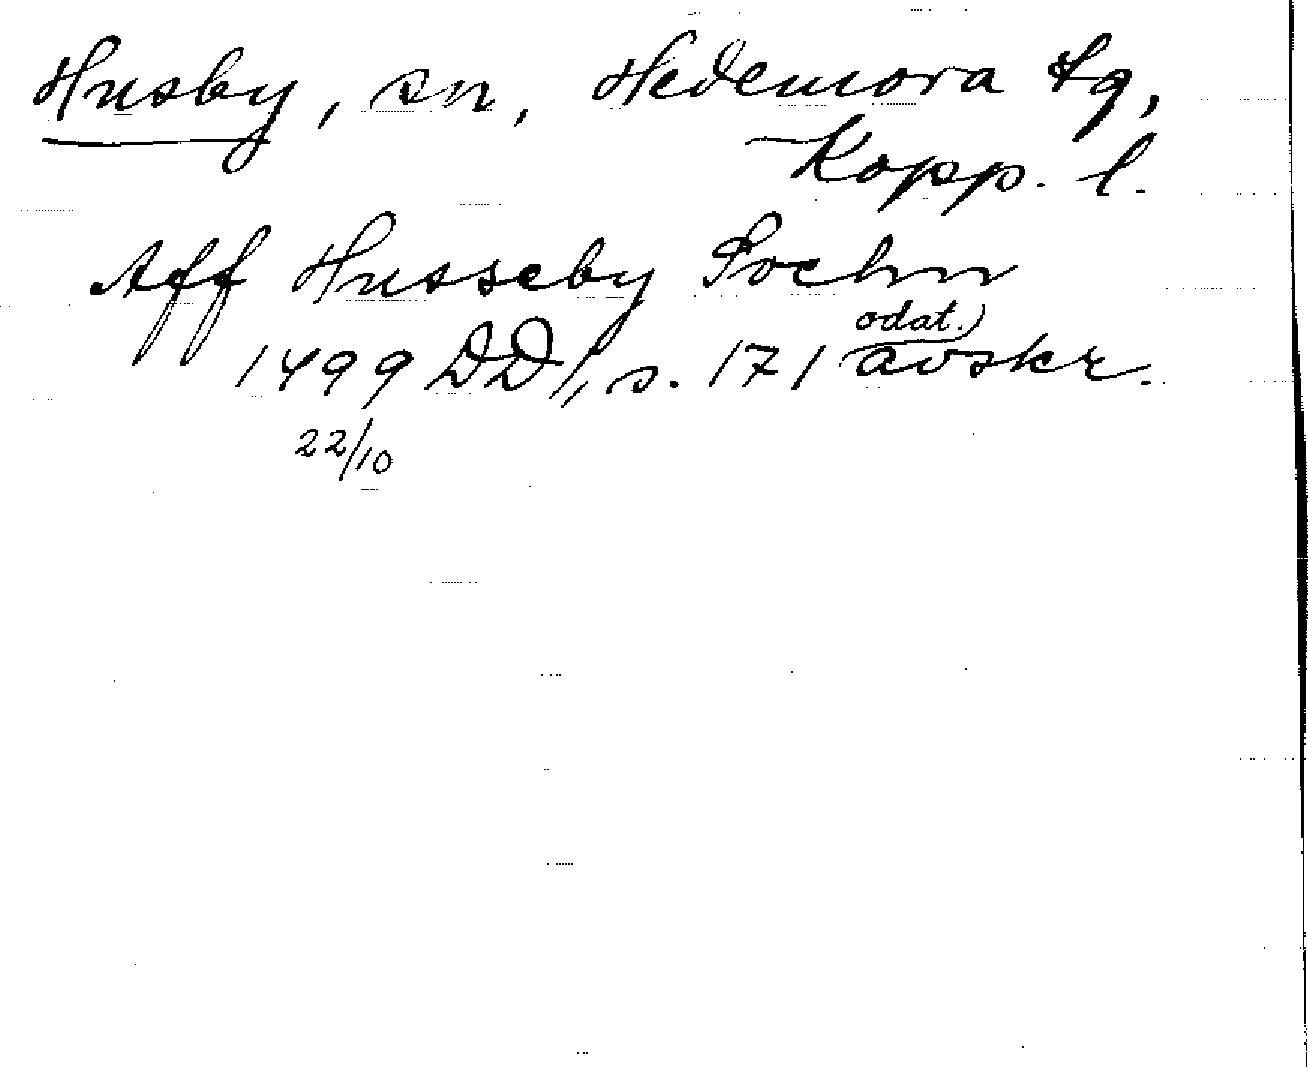 Husby, sn, Hedemora tg,
Kopp. l.
Aff Husseby Sochn
odat.)
1499 DD 1, s. 171 avskr.
22/10